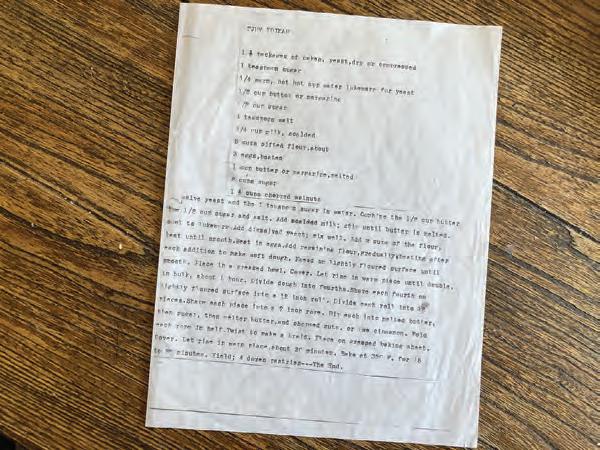 1 ½ packages of cakes, yeast,dry or compressed
1 teaspoon sugar
1/4 warm, not hot cup water lukewarm for yeast
1/2 cup butter or margarine
1/2 cup sugar
1 teaspoon salt
3/4 cup milk, scalded
5 cups sifted flour,about
3 eggs,beaten
1 cup butter or margarine,melted
2 cups sugar
1 ½ cups chopped walnuts
yeast and the 1 teaspoon sugar in water. Combine the 1/2 cup butter
1/2 cup sugar and salt. Add scalded milk; stir until butter is melted.
Cool to lukewarm.Add dissolved yeast; mix well. Add 2 cups of the flour,
beat until smooth.Beat in eggs.Add remaining flour,gradually,beating after
each addition to make soft dough. Knead on lightly floured surface until
smooth. Place in a greased bowl. Cover. Let rise in warm place until double,
in bulk, about 1 hour. Divide dough into fourths.Shape each fourth on
lightly floured surface into a 12 inch roll. Divide each roll into
pieces.Shape each piece into a 7 inch rope. Dip each into melted butter,
then sugar, then melted butter,and chopped nuts, or use cinnamon. Fold
each rope in half.Twist to make a braid. Place on greased baking sheet.
Cover. Let rise in warm place,about 30 minutes. Bake at 350 F. for 15
to 20 minutes. Yield; 4 dozen pastries---The End.